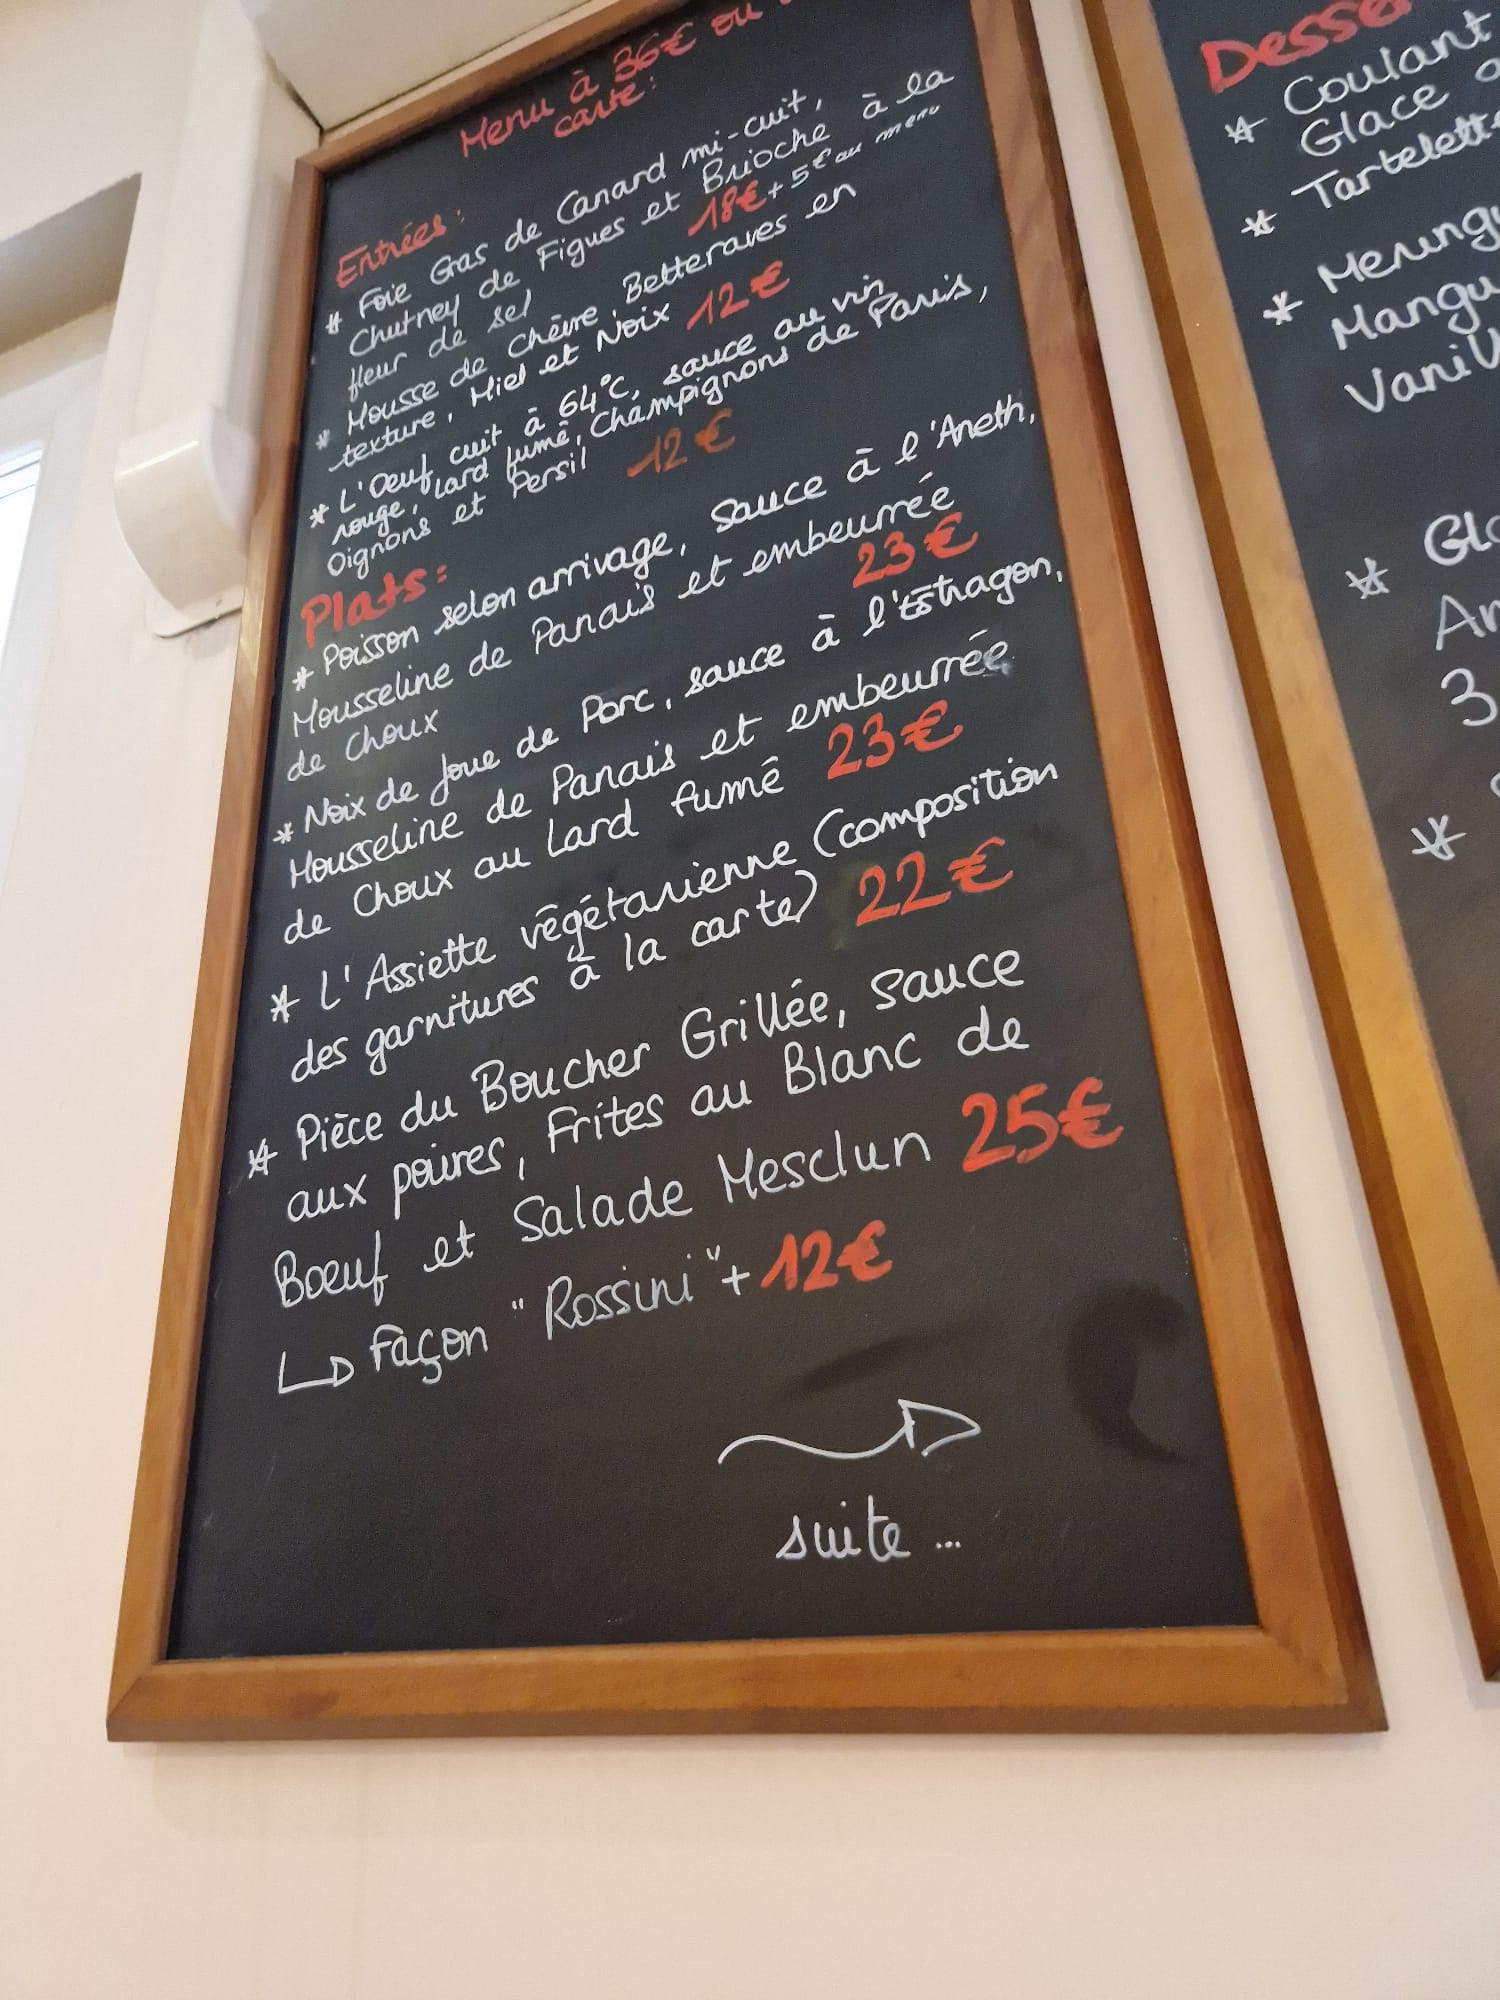 Menu à 36€ ou
carte:
Entrées:
* Foie Gras de Canard mi-cuit,
Chutney de Figues et Brioche à la
fleur de sel 18€ + 5€ au menu
* Mousse de Chèvre, Betteraves en
texture, Miel et Noix 12€
* L'Oeuf cuit à 64°C, sauce au vin
rouge, Lard fumé, Champignons de Paris,
Oignons et Persil 12€
Plats:
* Poisson selon arrivage, Sauce à l'Aneth,
Mousseline de Panais et embeurrée
de Choux 23€
* Noix de Joue de Porc, sauce à l'Estragon,
Mousseline de Panais et embeurrée
de Choux au Lard fumé 23€
* L'Assiette végétarienne (composition
des garnitures à la carte) 22€
* Pièce du Boucher Grillée, sauce
aux poivres, Frites au Blanc de
Boeuf et Salade Mesclun 25€
↳ Façon "Rossini" + 12€
suite ...
Desse
* Coulant
Glace
* Tartelett
* Mering
Mangu
Vanil
* Gl
3
*